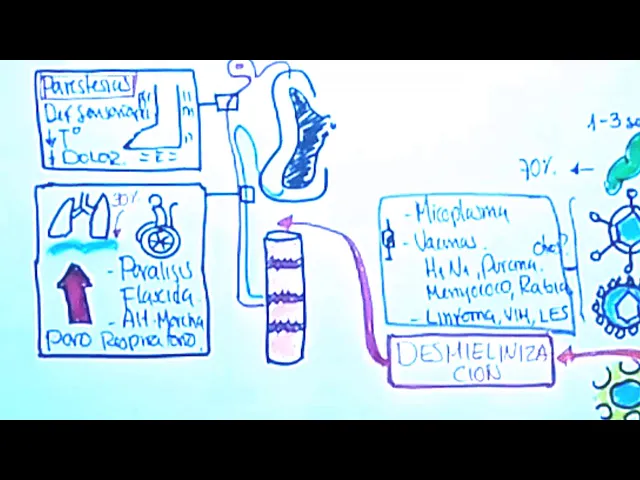 Parestesias
Def sensorial
↓ T°
↓ Dolor
30%
- Paralisis
Flaxida
- Alt. Marcha
Paro Respiratorio
- Micoplasma
- Vacunas
H1N1,
Menigococo, Rabia
- Linfoma, VIH, LES
DESMIELINIZA
CION
1-3
70%